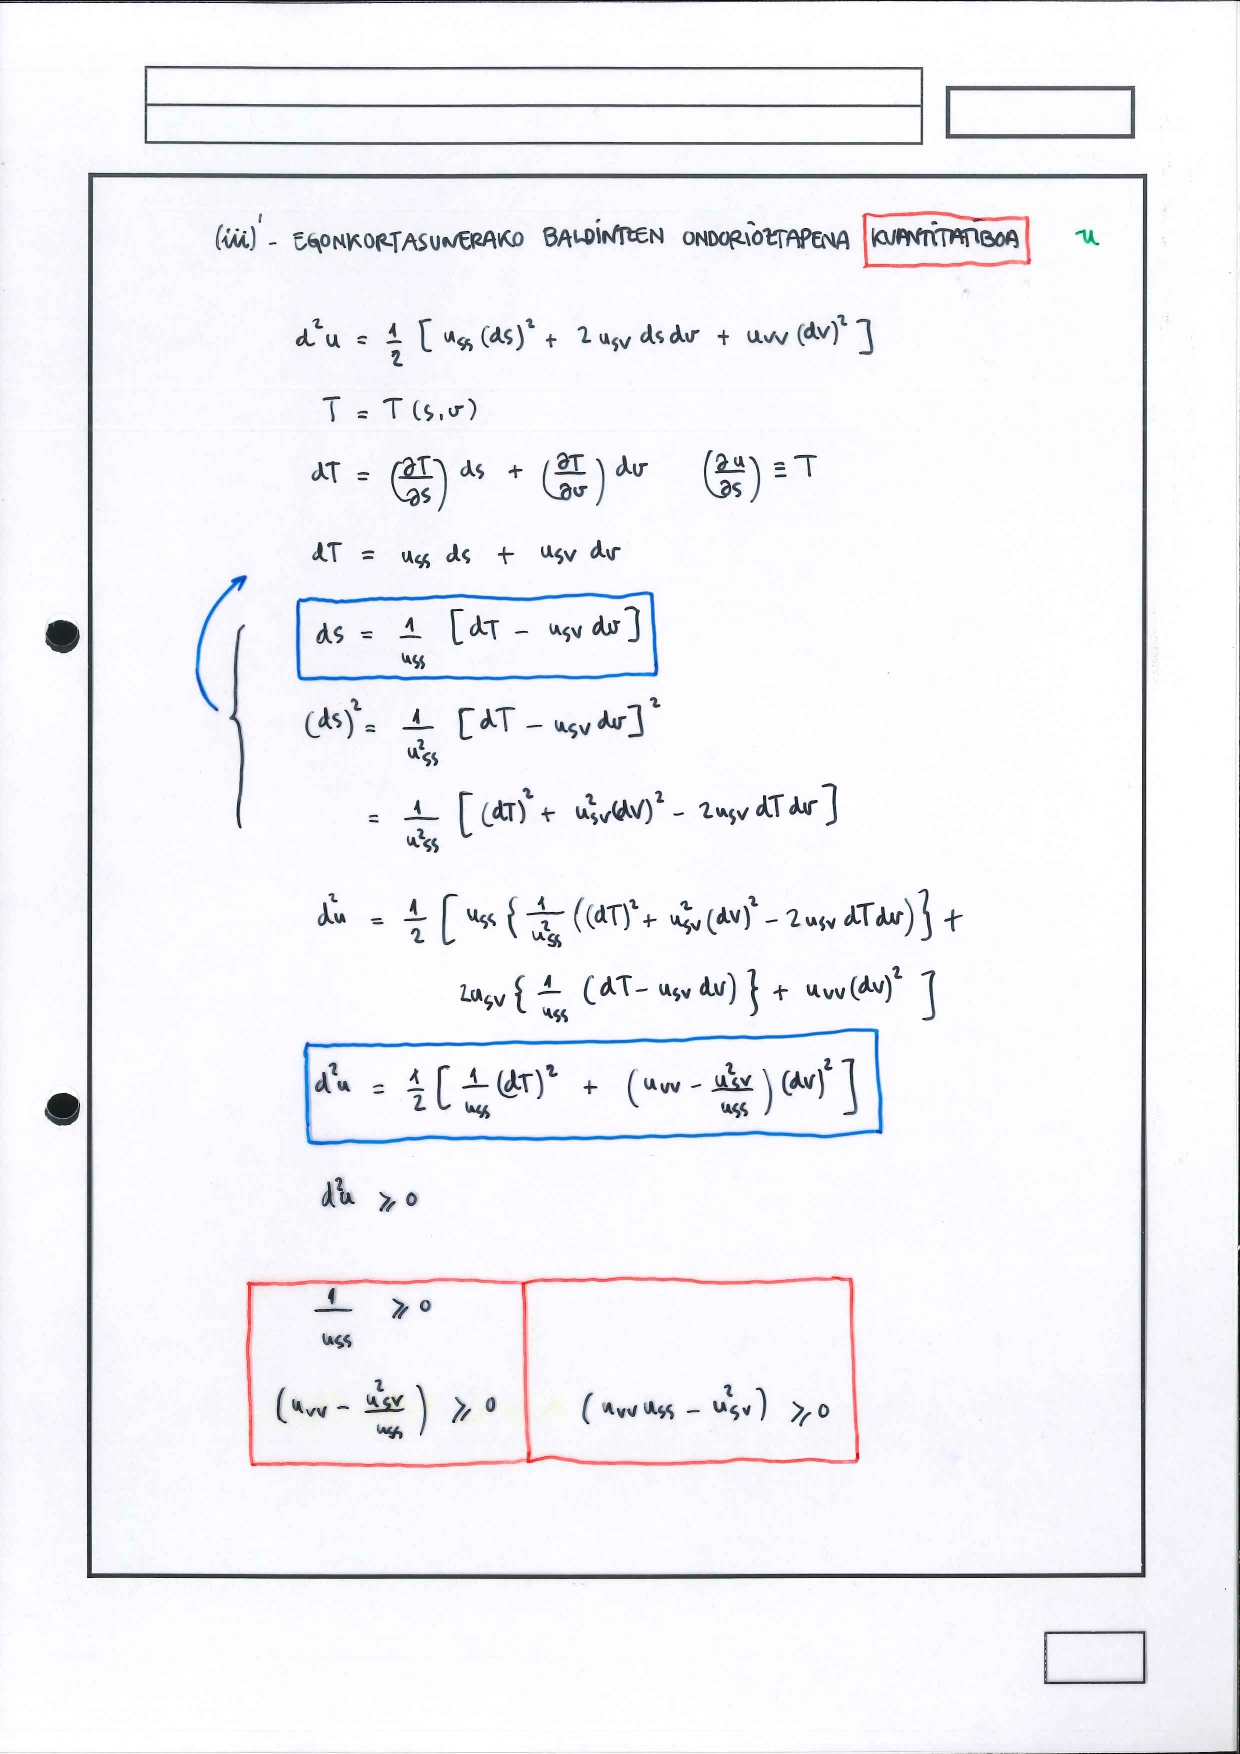 (iii)' - EGONKORTASUNERAKO BALDINTZEN ONDORIOZTAPENA KUANTITATIBOA u
d²u = 1/2 [ u_ss (ds)² + 2 u_sv ds dv + u_vv (dv)² ]
T = T (s, v)
dT = (∂T/∂s) ds + (∂T/∂v) dv (∂u/∂s) ≡ T
dT = u_ss ds + u_sv dv
ds = 1/u_ss [ dT - u_sv dv ]
(ds)² = 1/u²_ss [ dT - u_sv dv ]²
= 1/u²_ss [ (dT)² + u²_sv (dv)² - 2 u_sv dT dv ]
d²u = 1/2 [ u_ss { 1/u²_ss ((dT)² + u²_sv (dv)² - 2 u_sv dT dv) } +
2 u_sv { 1/u_ss (dT - u_sv dv) } + u_vv (dv)² ]
d²u = 1/2 [ 1/u_ss (dT)² + (u_vv - u²_sv/u_ss) (dv)² ]
d²u ⩾ 0
1/u_ss ⩾ 0
(u_vv - u²_sv/u_ss) ⩾ 0 (u_vv u_ss - u²_sv) ⩾ 0